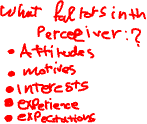 What factors in th
Perceiver:?
• Attitudes
• motives
• interests
• experience
• expectations